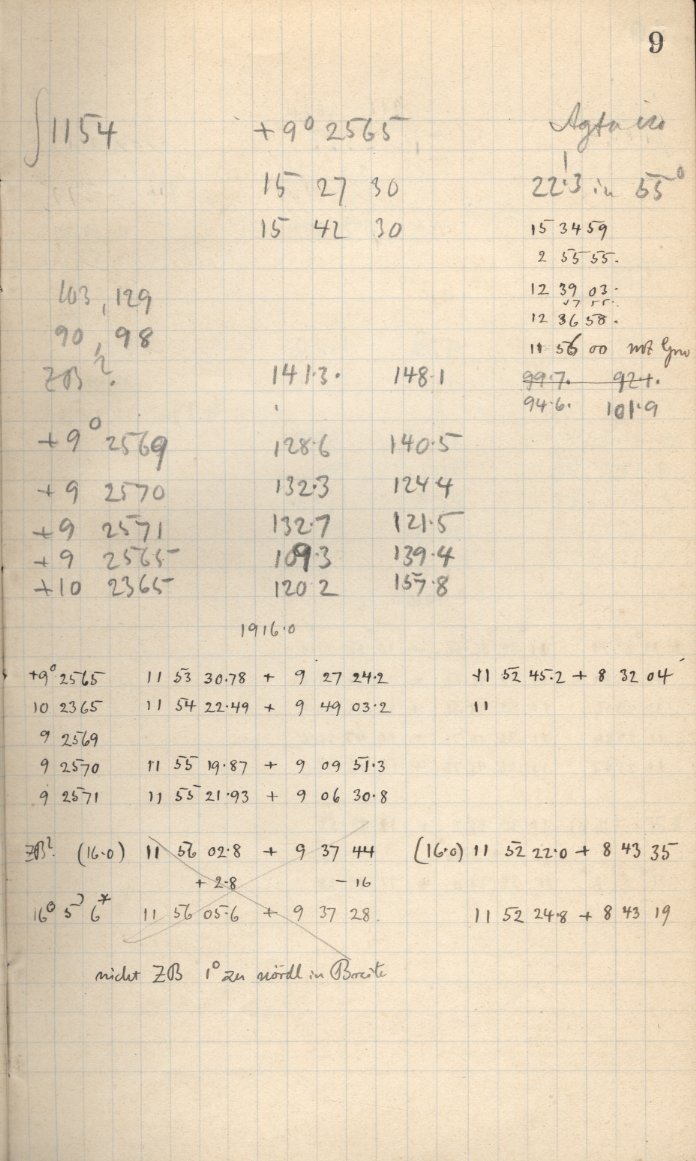 9
∫1154 +9° 2565 Agfa iso
15 27 30 22·3 in 55°
15 42 30 15 34 59
2 55 55.
103, 129 12 39 03.
90, 98 12 36 58.
11 56 00
ZB? 141·3. 148·1 99·7. 92·1.
94·6. 101·9
+9° 2569 128·6 140·5
+9 2570 132·3 124·4
+9 2571 132·7 121·5
+9 2565 109·3 139·4
+10 2365 120·2 157·8
1916·0
+9° 2565 11 53 30·78 + 9 27 24·2 11 52 45·2 + 8 32 04
10 2365 11 54 22·49 + 9 49 03·2 11
9 2569
9 2570 11 55 19·87 + 9 09 51·3
9 2571 11 55 21·93 + 9 06 30·8
ZB? (16·0) 11 56 02·8 + 9 37 44 (16·0) 11 52 22·0 + 8 43 35
+ 2·8 − 16
11 56 05·6 + 9 37 28. 11 52 24·8 + 8 43 19
nicht ZB 1° zu nördl in Breite